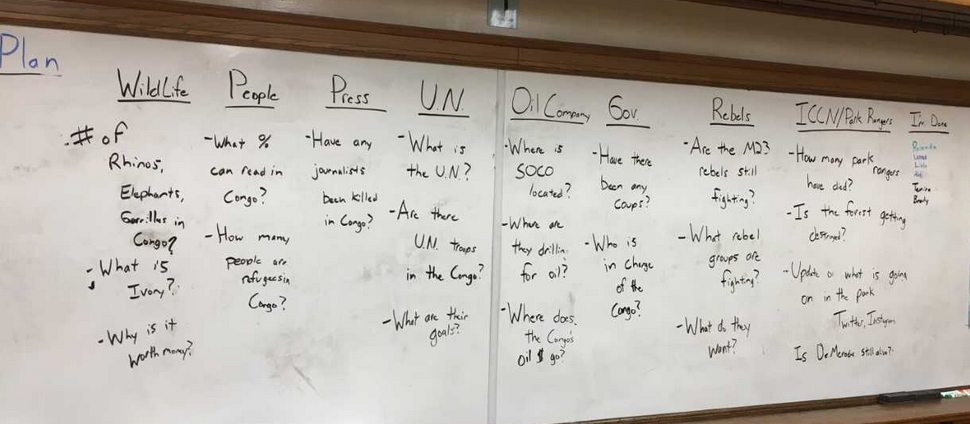 Plan
WildLife
.# of
Rhinos,
Elephants,
Gorrillas in
Congo?
- What is
Ivory?
- Why is it
worth money?
People
- What %
can read in
Congo?
- How many
people are
refugees in
Congo?
Press
- Have any
journalists
been killed
in Congo?
U.N.
- What is
the U.N?
- Are there
U.N. troops
in the Congo?
- What are their
goals?
Oil Company
- Where is
SOCO
located?
- Where are
they drillin.
for oil?
- Where does
the Congo's
Oil $ go?
Gov.
- Have there
been any
coups?
- Who is
in charge
of the
Congo?
Rebels
- Are the M23
rebels still
fighting?
- What rebel
groups are
fighting?
- What do they
want?
ICCN/Park Rangers
- How many park
rangers
have died?
- Is the forest getting
destroyed?
- Update on what is going
on in the park
Twitter, Instagram
Is DeMerode still alive?
I'm Done